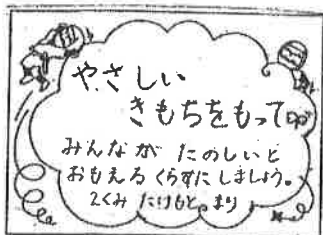 やさしい
きもちをもって
みんなが たのしいと
おもえる くらすに しましょう。
2くみ たけもと まり